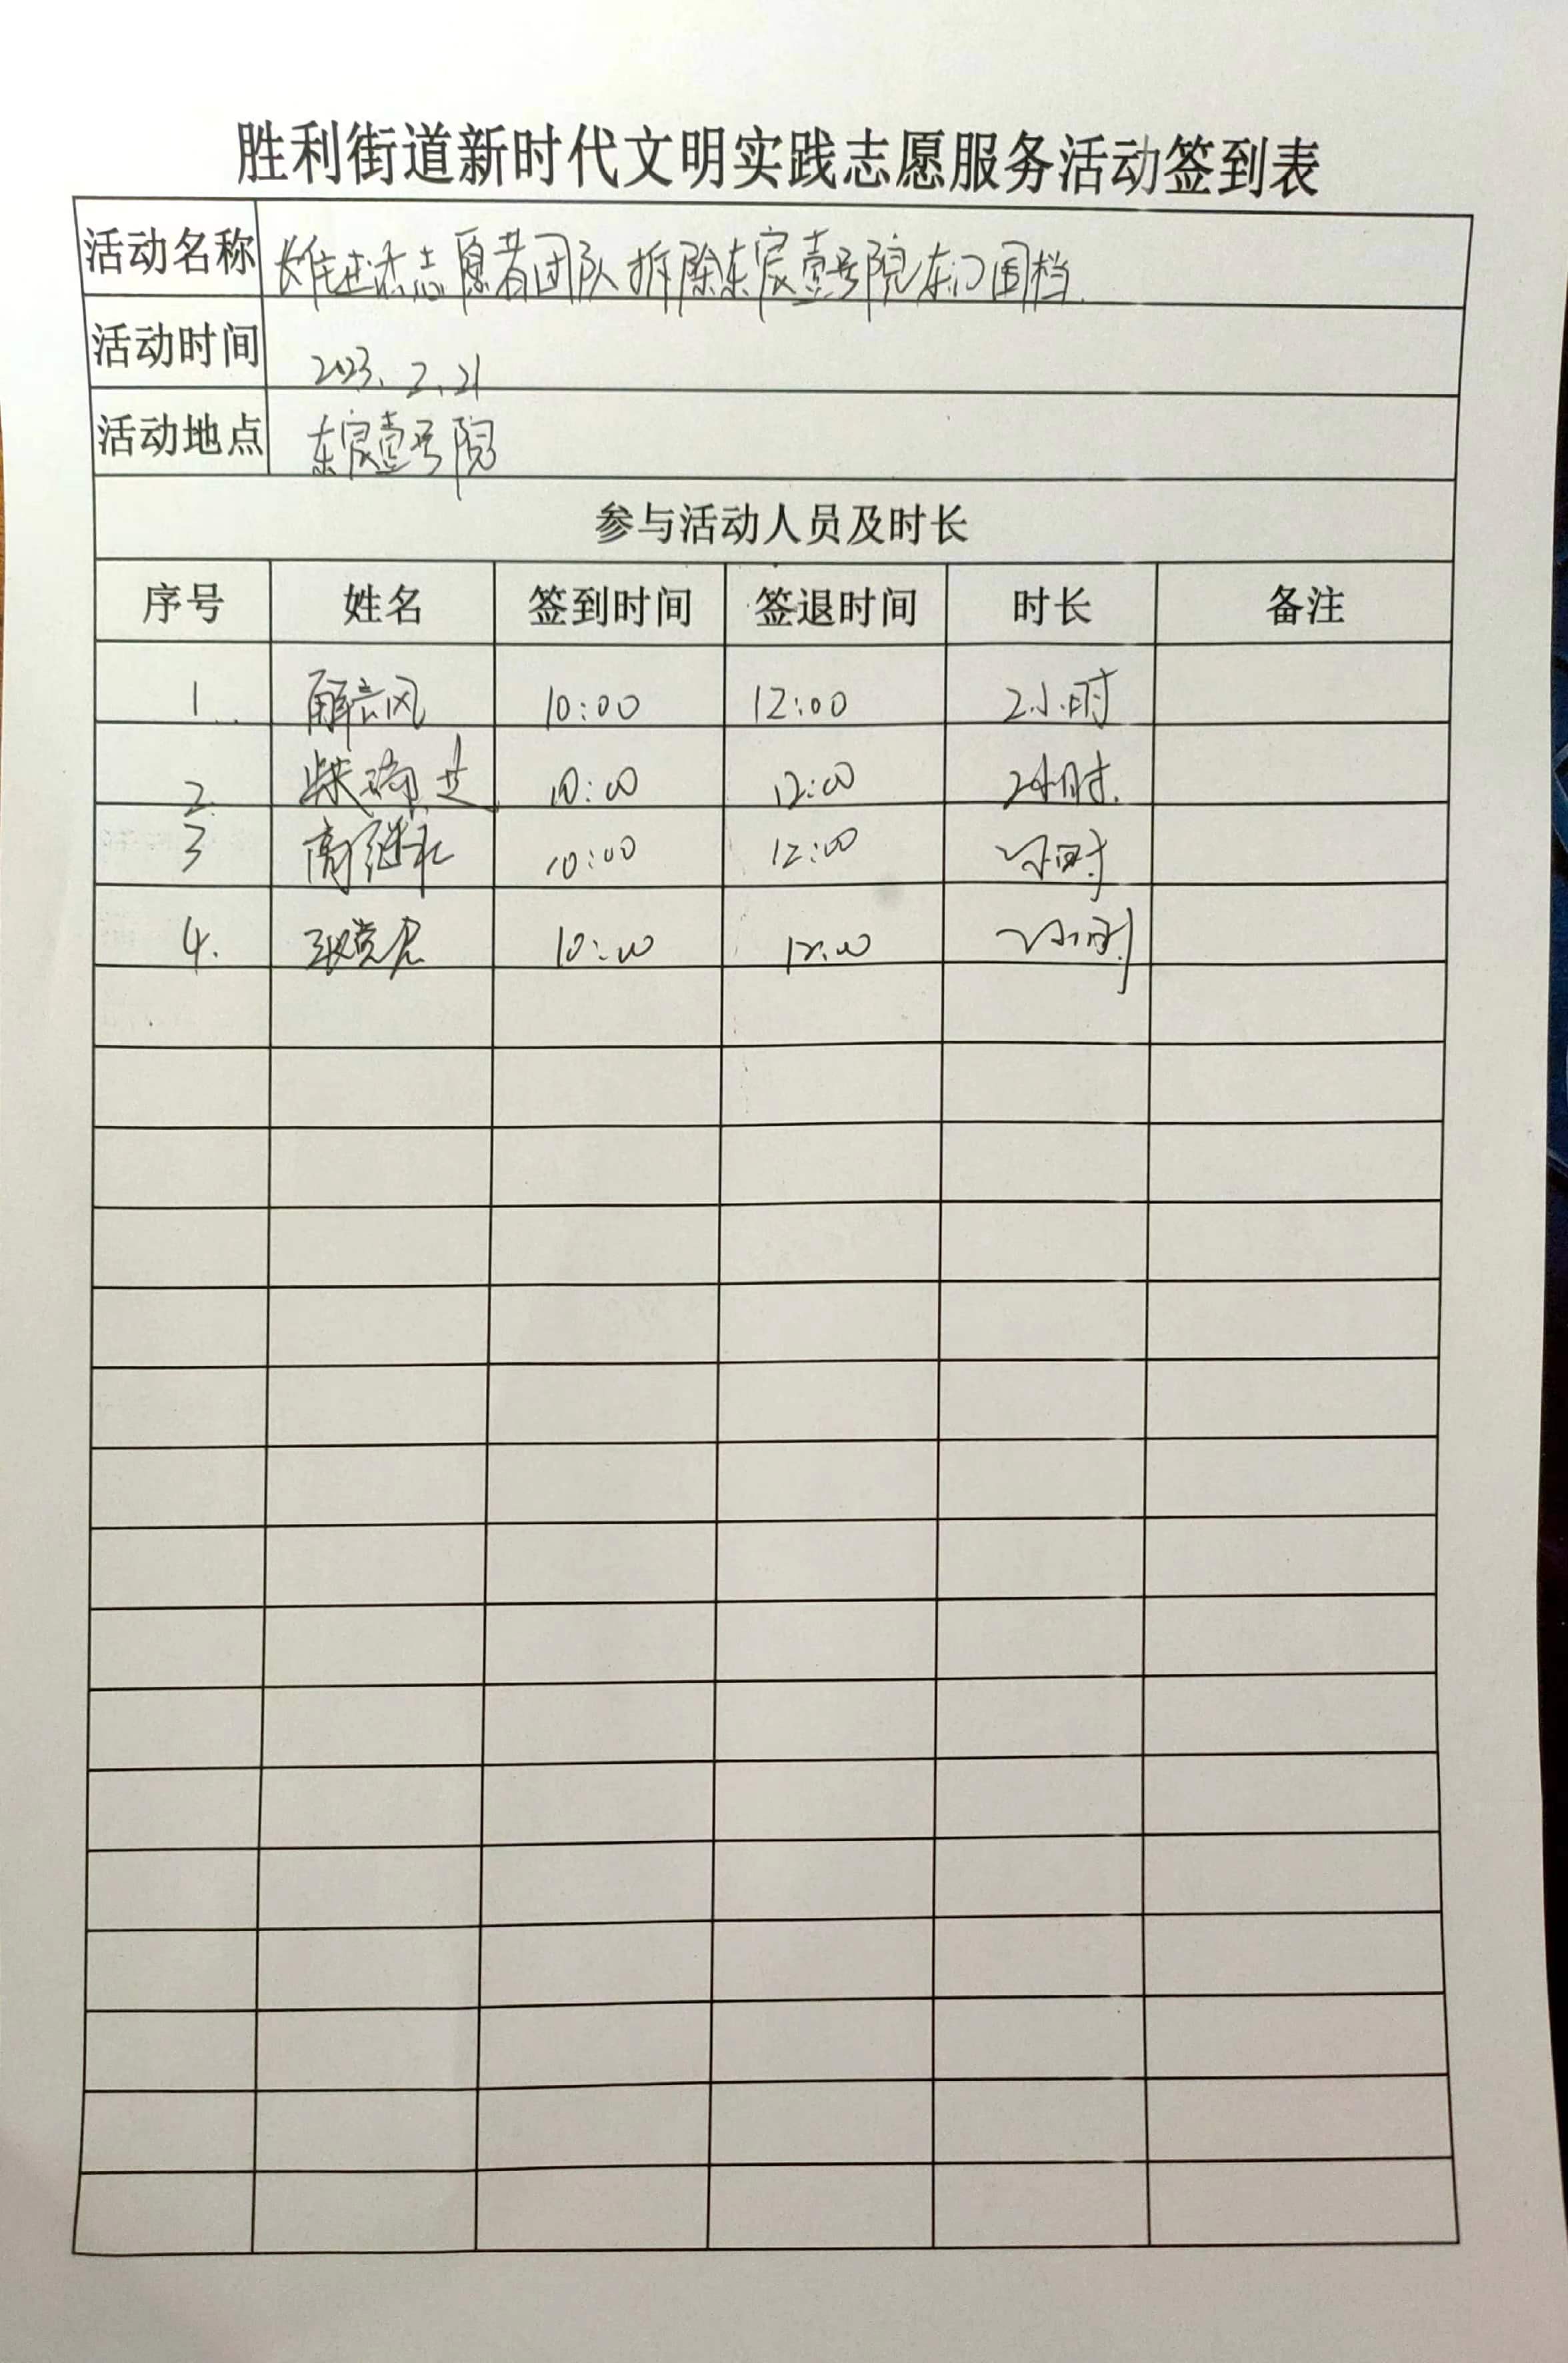 胜利街道新时代文明实践志愿服务活动签到表
活动名称 志愿者团队拆除东宸壹号院东门围档
活动时间 2023.2.21
活动地点 东宸壹号院
参与活动人员及时长
序号 姓名 签到时间 签退时间 时长 备注
1 解云风 10:00 12:00 2小时
2 柴 10:00 12:00 2小时
3 高继 10:00 12:00 2小时
4. 10:00 12:00 2小时